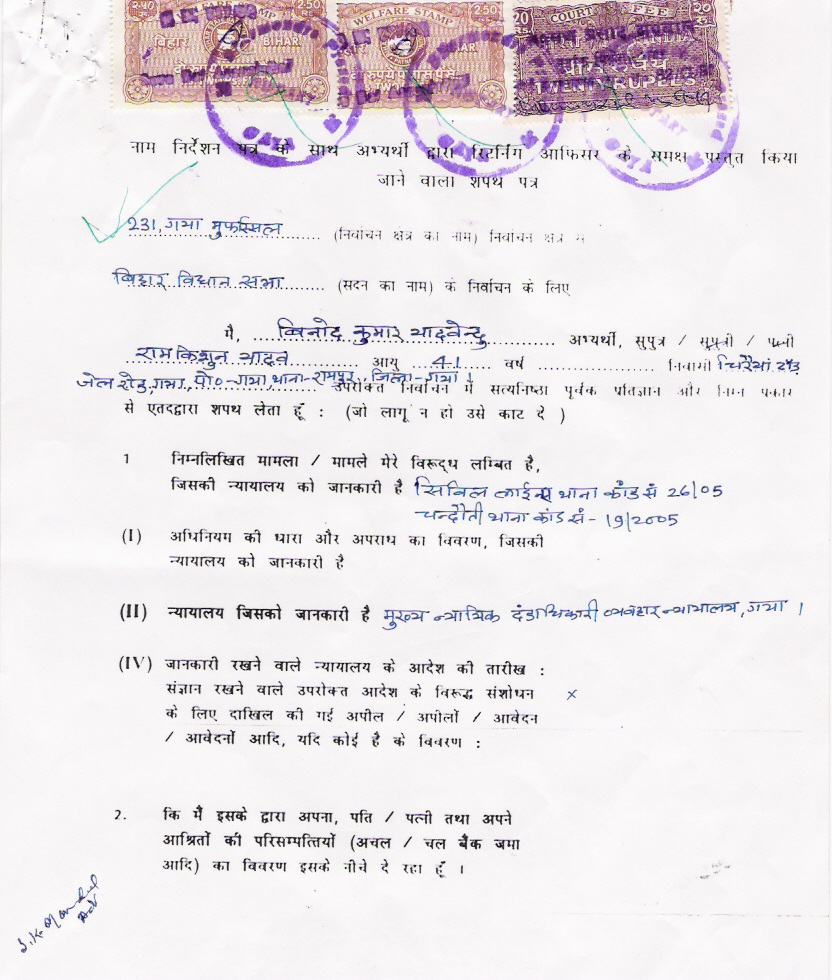 2.50 WELFARE STAMP 2.50 WELFARE STAMP 2.50 20 COURT FEE 20
बिहार BIHAR BIHAR
GAYA GAYA GAYA
नाम निर्देशन पत्र के साथ अभ्यर्थी द्वारा रिटर्निंग आफिसर के समक्ष प्रस्तुत किया
जाने वाला शपथ पत्र
231, गया मुफस्सिल (निर्वाचन क्षेत्र का नाम) निर्वाचन क्षेत्र से
बिहार विधान सभा (सदन का नाम) के निर्वाचन के लिए
मै, विनोद कुमार यादवेन्दु अभ्यर्थी, सुपुत्र / सुपुत्री / पत्नी
रामकिशुन यादव आयु 41 वर्ष निवासी चिरैयां रोड
जेल रोड, गया, पो०-गया, थाना-रामपुर, जिला-गया। उपरोक्त निर्वाचन में सत्यनिष्ठा पूर्वक प्रतिज्ञान और निम्न प्रकार
से एतदद्वारा शपथ लेता हूँ : (जो लागू न हो उसे काट दे )
1 निम्नलिखित मामला / मामले मेरे विरूद्ध लम्बित है,
जिसकी न्यायालय को जानकारी है सिविल लाईन्स थाना कांड सं 26/05
चन्दौती थाना कांड सं- 19/2005
(I) अधिनियम की धारा और अपराध का विवरण, जिसकी
न्यायालय को जानकारी है
(II) न्यायालय जिसको जानकारी है मुख्य न्यायिक दंडाधिकारी व्यवहार न्यायालय, गया ।
(IV) जानकारी रखने वाले न्यायालय के आदेश की तारीख :
संज्ञान रखने वाले उपरोक्त आदेश के विरूद्ध संशोधन ×
के लिए दाखिल की गई अपील / अपीलों / आवेदन
/ आवेदनों आदि, यदि कोई है के विवरण :
2. कि मैं इसके द्वारा अपना, पति / पत्नी तथा अपने
आश्रितों की परिसम्पत्तियों (अचल / चल बैंक जमा
आदि) का विवरण इसके नीचे दे रहा हूँ ।